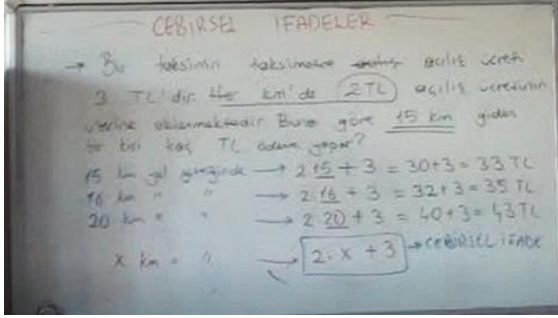 CEBİRSEL İFADELER
→ Bir taksinin taksimetre açılış ücreti
3 TL'dir. Her km'de 2TL açılış ücretinin
üzerine eklenmektedir. Buna göre 15 km giden
bir kişi kaç TL ödeme yapar?
15 km yol gittiğinde → 2.15 + 3 = 30+3 = 33 TL
16 km " " → 2.16 + 3 = 32+3 = 35 TL
20 km " " → 2.20 + 3 = 40+3 = 43 TL
x km " " → 2.x + 3 → CEBİRSEL İFADE